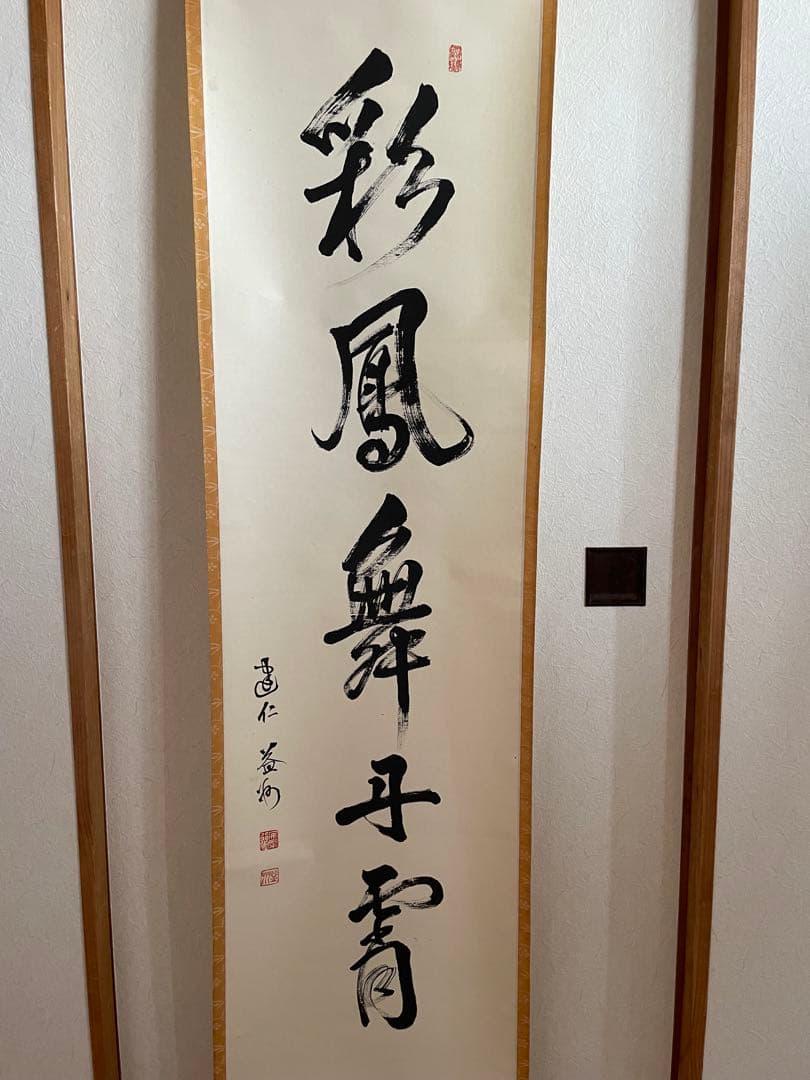 彩鳳舞丹霄
建仁 益州